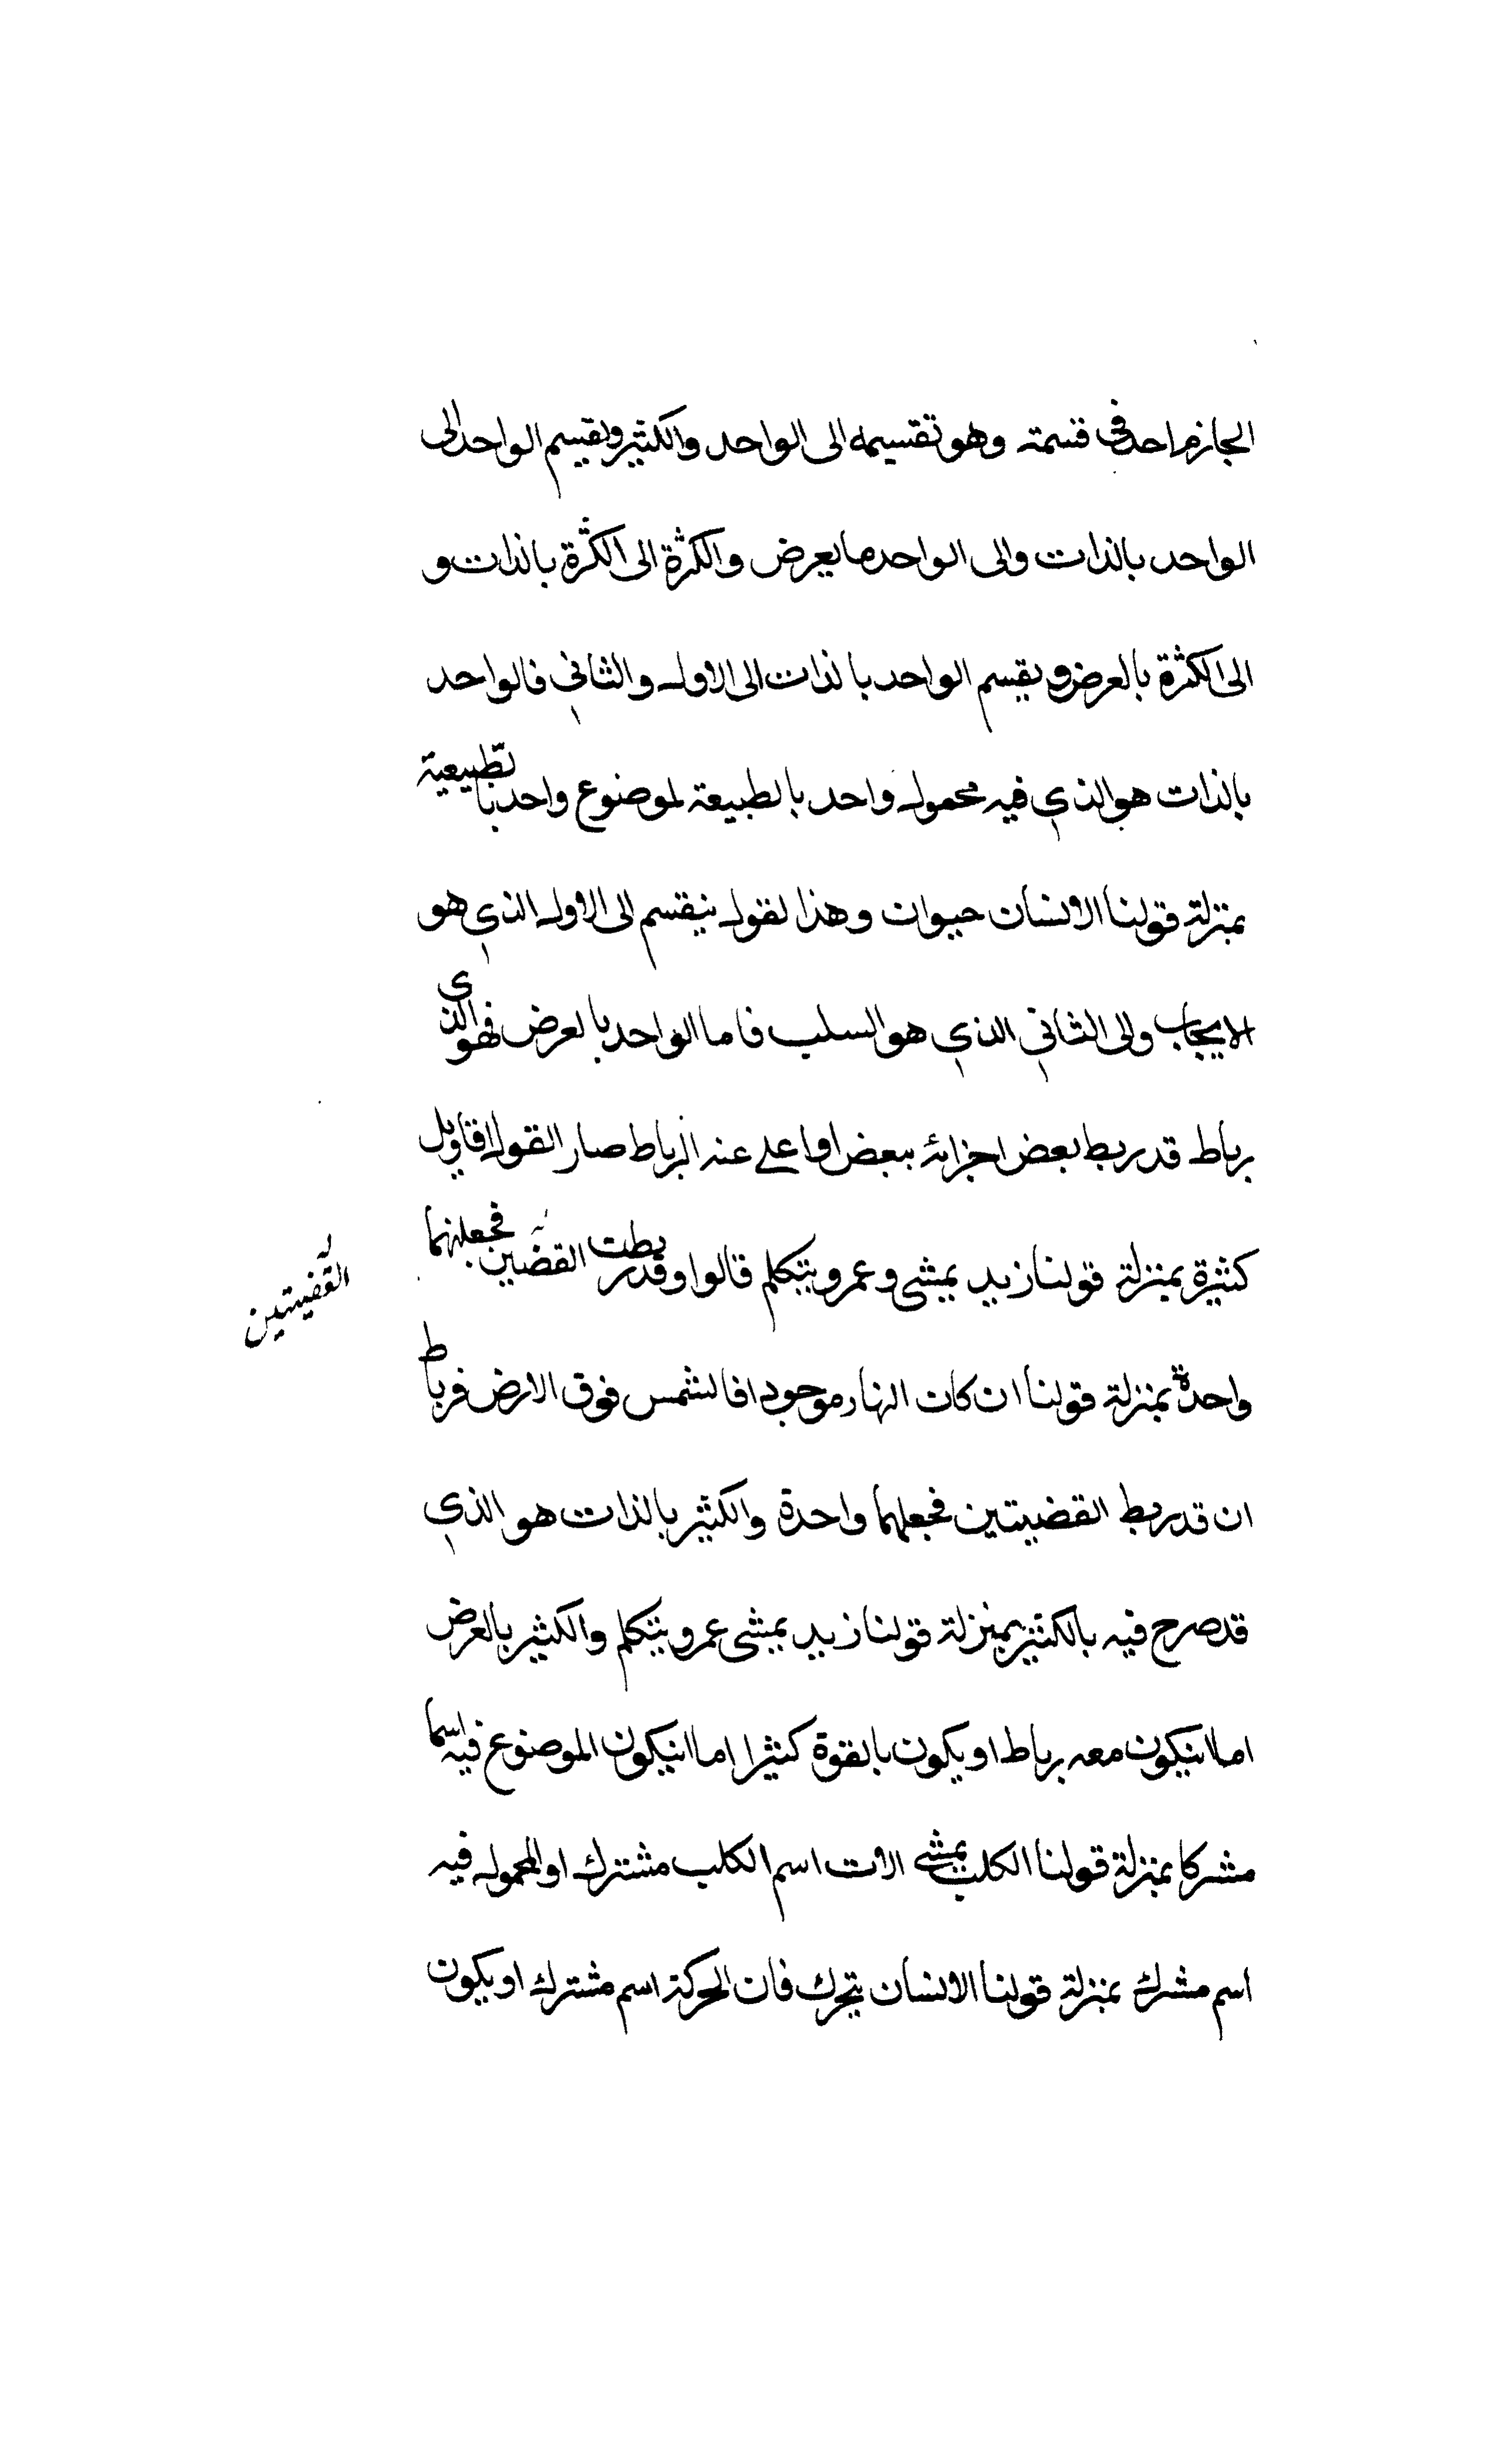 الجازم احد في قسمته وهو تقسيمه الى الواحد والكثير وتقسيم الواحد الى
الواحد بالذات والى الواحد ما بعرض والكثرة الى الكثرة بالذات و
الى الكثرة بالعرض ويقسم الواحد بالذات الى الاول والثاني فالواحد
بالذات هو الذي فيه محمول واحد بالطبيعة لموضوع واحد بالطبيعية
بمنزلة قولنا الانسان حيوان وهذا لقول ينقسم الى الاول الذي هو
الايجاب والى الثاني الذي هو السلب فاما الواحد بالعرض فهو الذى
رباط قد ربط بعض اجزائه ببعض اوا على عنه الرباط صار القول اقاويل
كثيرة بمنزلة قولنا زيد يمشى وعمرو يتكلم قالوا وقد ربطت القضين فجعلنهما
القضيتين
واحدة بمنزلة قولنا ان كان النهار موجودا فالشمس فوق الارض فرباط
ان قد ربط القضيتين فجعلهما واحدة والكثير بالذات هو الذي
قد صرح فيه بالكثير بمنزلة قولنا زيد يمشى عمرو يتكلم والكثير بالعرض
اما انيكون معه رباط او يكون بالقوة كثيرا اما انيكون الموضوع فيه اسما
مشركا بمنزلة قولنا الكلب يمشى الان اسم الكلب مشترك او المحمول فيه
اسم مشرك بمنزلة قولنا الانسان يتحرك فان الحركة اسم مشترك او يكون